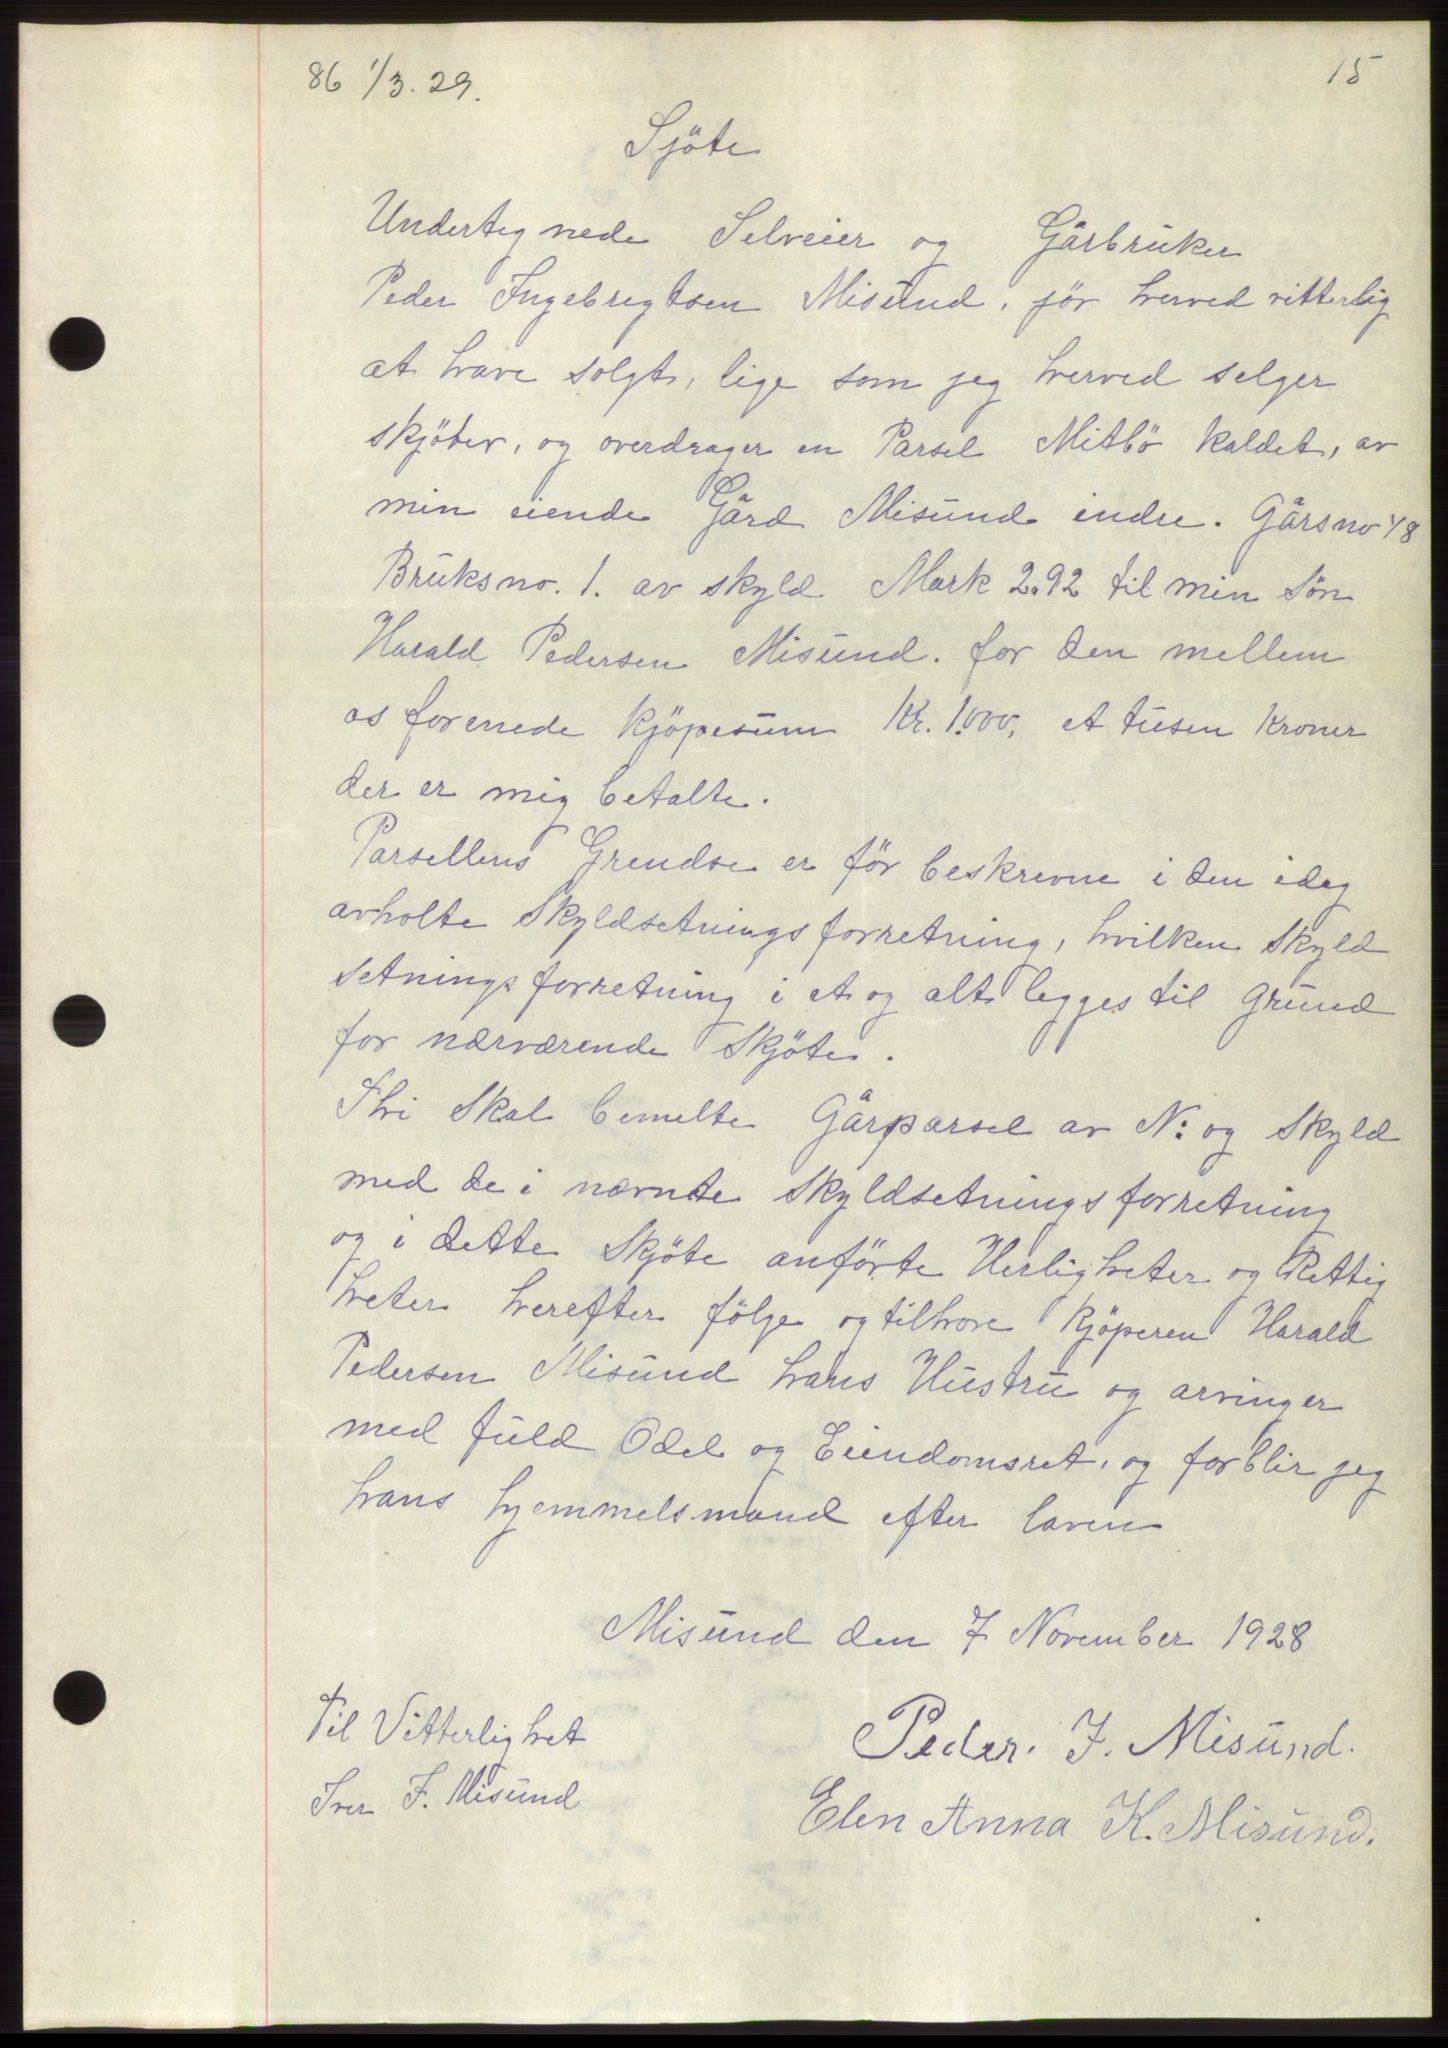 86 1/3. 29.
15
Sjöte
Undertegnede Selveier og Gårbruker
Peder Ingebregtsen Misund. jör herved vitterlig
at have solgt, lige som jeg herved selger
skjöter, og overdrager en Parsel Mitbö kaldet, av
min eiende Gård Misund indre. Gårsno 48
Bruksno. 1. av skyld Mark 2.92 til min Sön
Harald Pedersen Misund. for den mellem
os forenede Kjöpesum Kr. 1000, et tusen Kroner
der er mig betalte.
Parsellens Grendse er før beskrevne i den idag
avholte Skyldsetningsforretning, hvilken Skyld
setningsforretning i et og alt legges til Grund
for nærværende Skjöte.
Thi Skal bemelte Gårparsel av No og Skyld
med de i nævnte Skyldsetningsforretning
og i dette Skjöte anförte Herligheter og Rettig
heter herefter fölge og tilhöre Kjöperen Harald
Pedersen Misund hans Hustru og arvinger
med fuld Odel og Eiendomsret, og forblir jeg
hans hjemmelsmand efter loven
Misund den 7 November 1928
Til Vitterlighet
Peder. I. Misund.
Iver F. Misund
Elen Anna K. Misund.